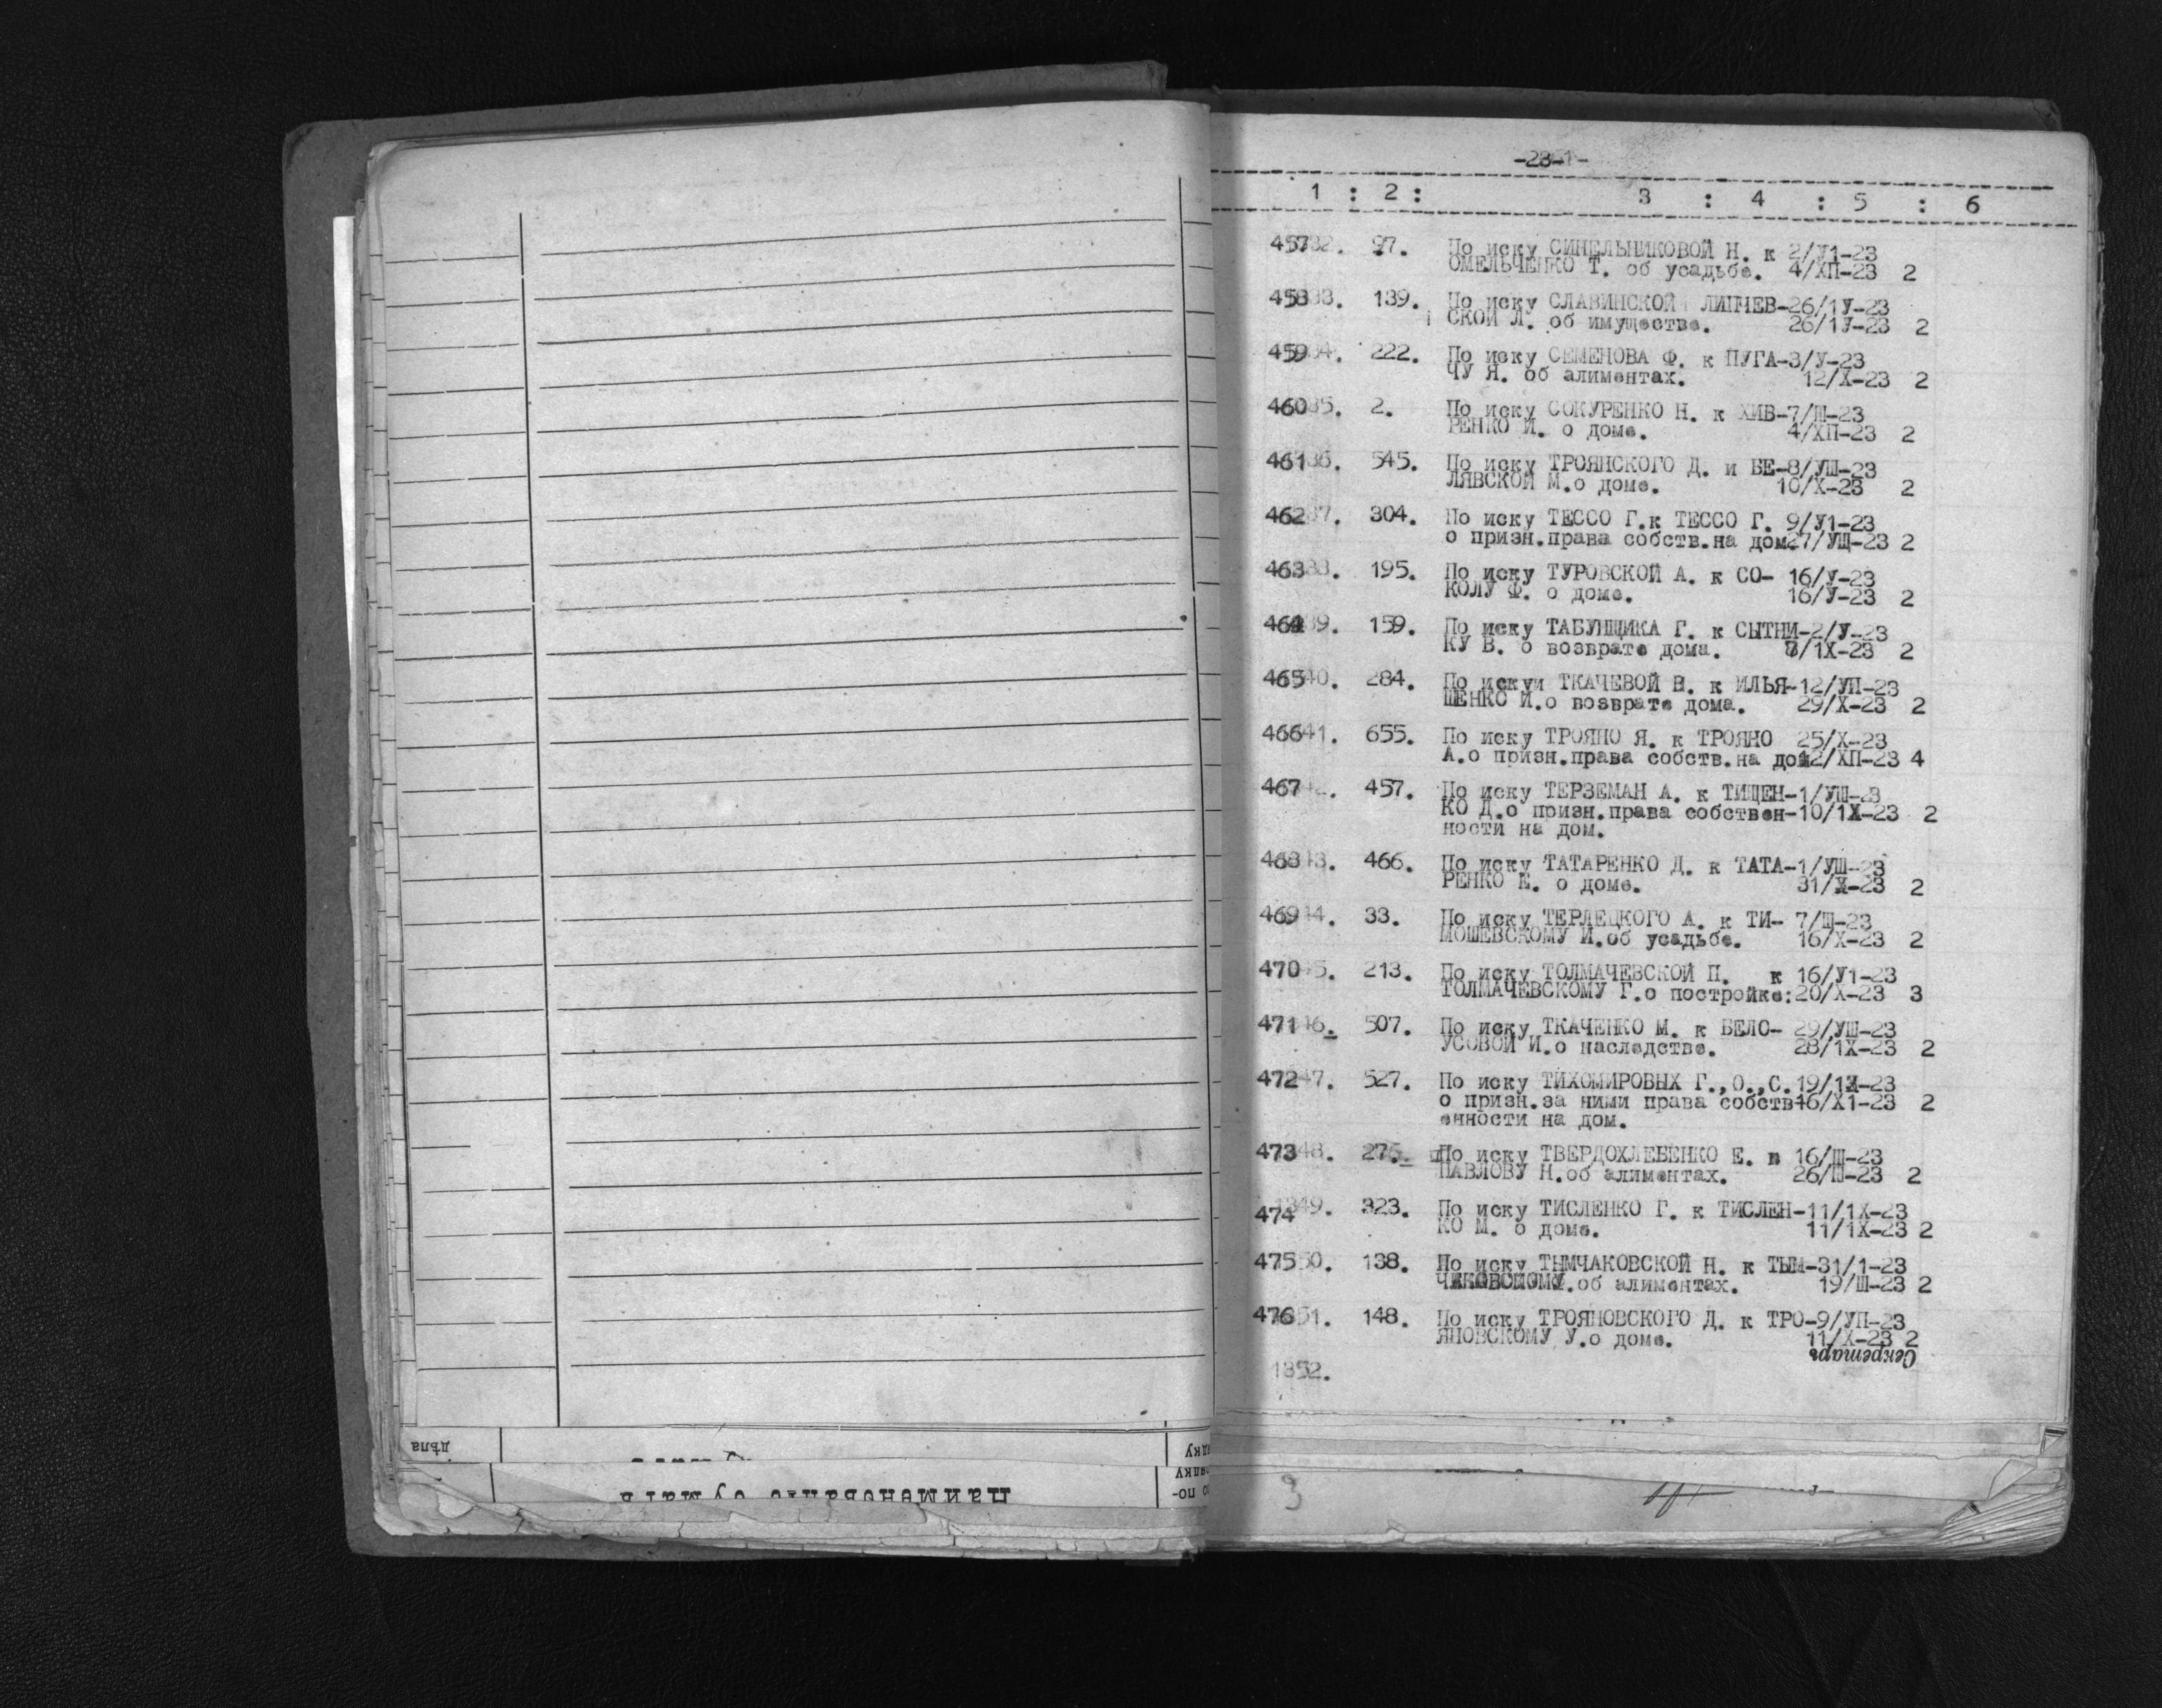 -23-1-
1 : 2 : 3 : 4 : 5 : 6
457 97. По иску СИНЕЛЬНИКОВОЙ Н. к 2/У1-23
ОМЕЛЬЧЕНКО Т. об усадьбе. 4/ХП-23 2
458 139. По иску СЛАВИНСКОЙ ЛИПЧЕВ-26/1У-23
СКОЙ Л. об имуществе. 26/1У-23 2
459 222. По иску СЕМЕНОВА Ф. к ПУГА-3/У-23
ЧУ Я. об алиментах. 12/Х-23 2
460 2. По иску СОКУРЕНКО Н. к ХИВ-7/Ш-23
РЕНКО И. о доме. 4/ХП-23 2
461 545. По иску ТРОЯНСКОГО Д. и БЕ-8/УШ-23
ЛЯВСКОЙ М.о доме. 10/Х-23 2
462 304. По иску ТЕССО Г.к ТЕССО Г. 9/У1-23
о призн.права собств.на дом.27/УШ-23 2
463 195. По иску ТУРОВСКОЙ А. к СО- 16/У-23
КОЛУ Ф. о доме. 16/У-23 2
464 159. По иску ТАБУНЩИКА Г. к СЫТНИ-2/У-23
КУ В. о возврате дома. /1Х-23 2
465 284. По искуи ТКАЧЕВОЙ В. к ИЛЬЯ-12/УП-23
ШЕНКО И.о возврате дома. 29/Х-23 2
466 655. По иску ТРОЯНО Я. к ТРОЯНО 25/Х-23
А.о призн.права собств.на дом12/ХП-23 4
467 457. По иску ТЕРЗЕМАН А. к ТИЩЕН-1/УШ-23
КО Д.о призн.права собствен-10/1Х-23 2
ности на дом.
468 466. По иску ТАТАРЕНКО Д. к ТАТА-1/УШ-23
РЕНКО Е. о доме. 31/Х-23 2
469 33. По иску ТЕРЛЕЦКОГО А. к ТИ- 7/Ш-23
МОШЕВСКОМУ И.об усадьбе. 16/Х-23 2
470 213. По иску ТОЛМАЧЕВСКОЙ П. к 16/У1-23
ТОЛМАЧЕВСКОМУ Г.о постройке:20/Х-23 3
471 507. По иску ТКАЧЕНКО М. к БЕЛО- 29/УШ-23
УСОВОЙ И.о наследстве. 28/1Х-23 2
472 527. По иску ТИХОМИРОВЫХ Г.,О.,С.19/1Х-23
о призн.за ними права собств-16/Х1-23 2
енности на дом.
473 По иску ТВЕРДОХЛЕБЕНКО Е. 16/Ш-23
ПАВЛОВУ Н.об алиментах. 26/Ш-23 2
474 323. По иску ТИСЛЕНКО Г. к ТИСЛЕН-11/1Х-23
КО М. о доме. 11/1Х-23 2
475 138. По иску ТЫМЧАКОВСКОЙ Н. к ТЫМ-31/1-23
об алиментах. 19/Ш-23 2
476 148. По иску ТРОЯНОВСКОГО Д. к ТРО-9/УП-23
ЯНОВСКОМУ У.о доме. 11/Х-23 2
Секретарь
1352.
дѣла
наименованіе бумагъ
3